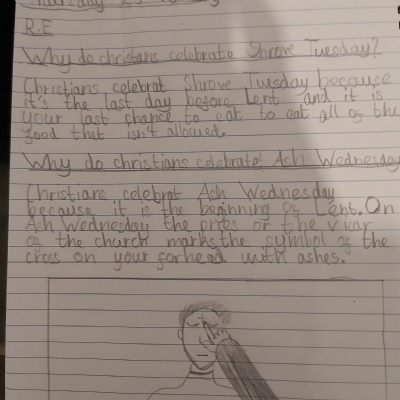 R.E
Why do christans celebrate Shrove Tuesday?
Christians celebrat Shrove Tuesday because
it's the last day before Lent and it is
your last chance to eat to eat all of the
food that isn't allowed.
Why do christians celebrate Ash Wednesday
Christians celebrat Ash Wednesday
because it is the beginning of Lent. On
Ash Wednesday the pries or the vicar
of the church marks the symbol of the
cross on your forhead with ashes.